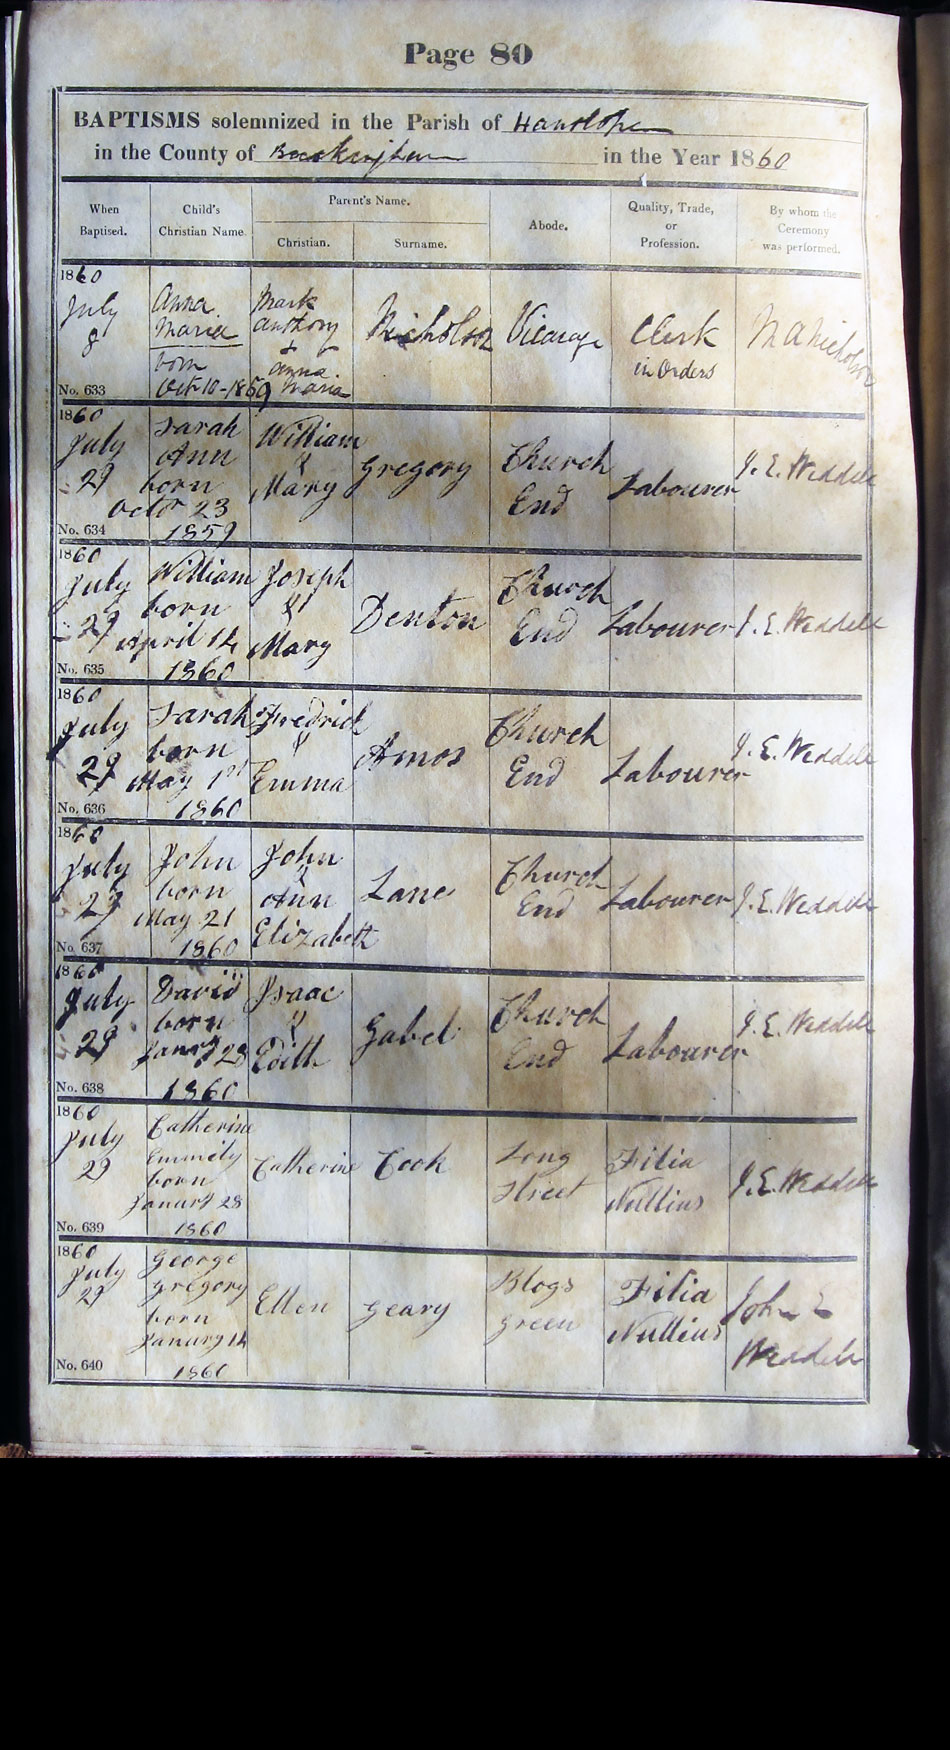 Page 80
BAPTISMS solemnized in the Parish of Hanslope
in the County of Buckingham in the Year 1860
When Baptised.
Child's Christian Name
Parent's Name.
Christian.
Surname.
Abode.
Quality, Trade, or Profession.
By whom the Ceremony was performed.
1860
July
8
No. 633
Anna
Maria
born
Oct 10-1859
Mark
Anthony
+
Anna
Maria
Nicholson
Vicarage
Clerk
in Orders
M A Nicholson
1860
July
29
No. 634
Sarah
Ann
born
Octor 23
1859
William
&
Mary
Gregory
Church
End
Labourer
J. E. Weddell
1860
July
29
No. 635
William
born
April 14
1860
Joseph
&
Mary
Denton
Church
End
Labourer
J. E. Weddell
1860
July
29
No. 636
Sarah
born
May 1st
1860
Fredrick
&
Emma
Amos
Church
End
Labourer
J. E. Weddell
1860
July
29
No. 637
John
born
May 21
1860
John
&
Ann
Elizabeth
Lane
Church
End
Labourer
J. E. Weddell
1860
July
29
No. 638
David
born
Janry 28
1860
Isaac
&
Edith
Gabel
Church
End
Labourer
J. E. Weddell
1860
July
29
No. 639
Catherine
Emmily
born
Janury 28
1860
Catherine
Cook
Long
Street
Filia
Nullius
J. E. Weddell
1860
July
29
No. 640
George
Gregory
born
Janury 14
1860
Ellen
Geary
Blogs
green
Filia
Nullius
John E
Weddell